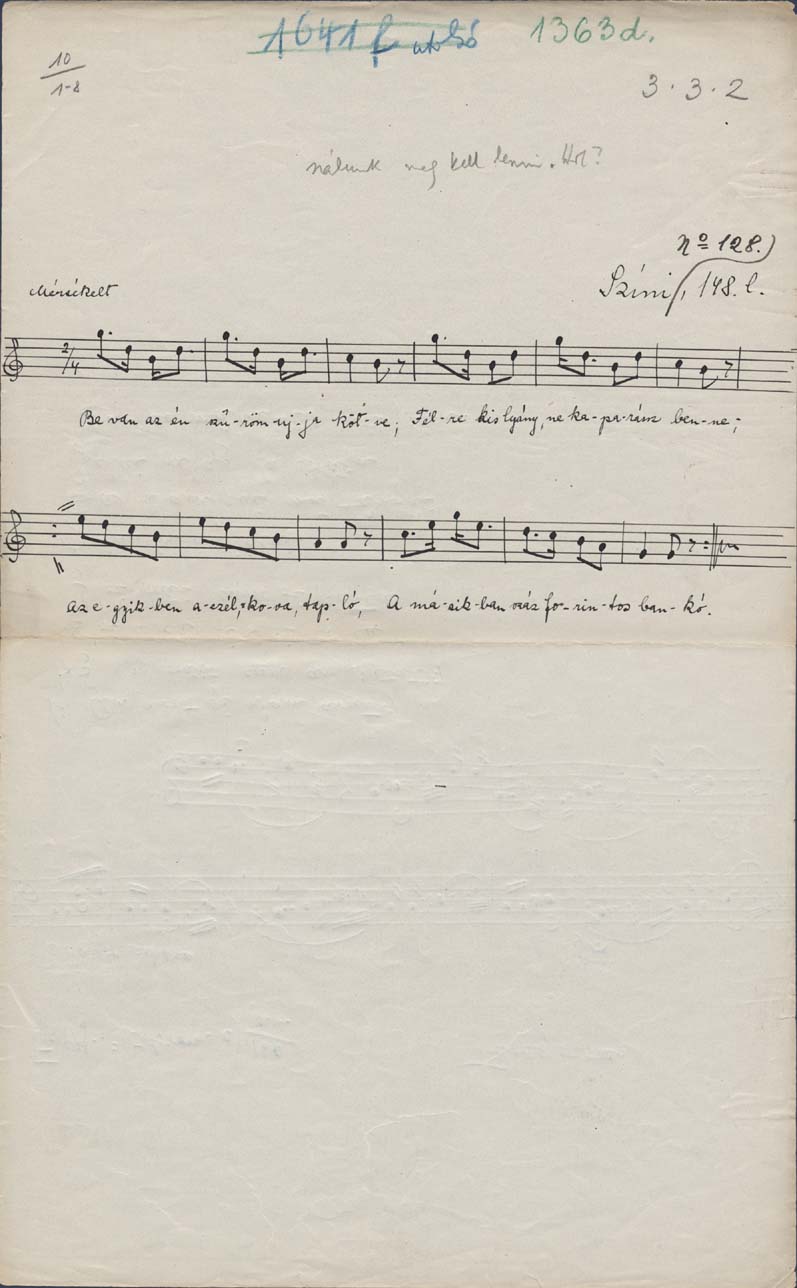 1641 f utolsó 1363d.
10
1-8
3.3.2
nálunk meg kell lenni. Hol?
No 128.)
Mérsékelt
Színi, 148. l.
2/4
Be van az én szű-röm uj-ja köt-ve; Fél-re kislyány, ne ka-pa-rász ben-ne;
Az e-gyik-ben a-czél, ko-va, tap-ló, A má-sik-ban száz fo-rin-tos ban-kó.